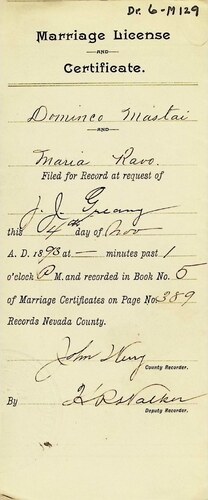 Dr. 6-M129
Marriage License
AND
Certificate.
Dominco Mastai
AND
Maria Ravo.
Filed for Record at request of
J. J. Greany
this 4th day of Nov
A. D. 1893 at — minutes past 1
o'clock P M. and recorded in Book No. 5
of Marriage Certificates on Page No. 389
Records Nevada County.
John Werry
County Recorder.
By H R Walker
Deputy Recorder.